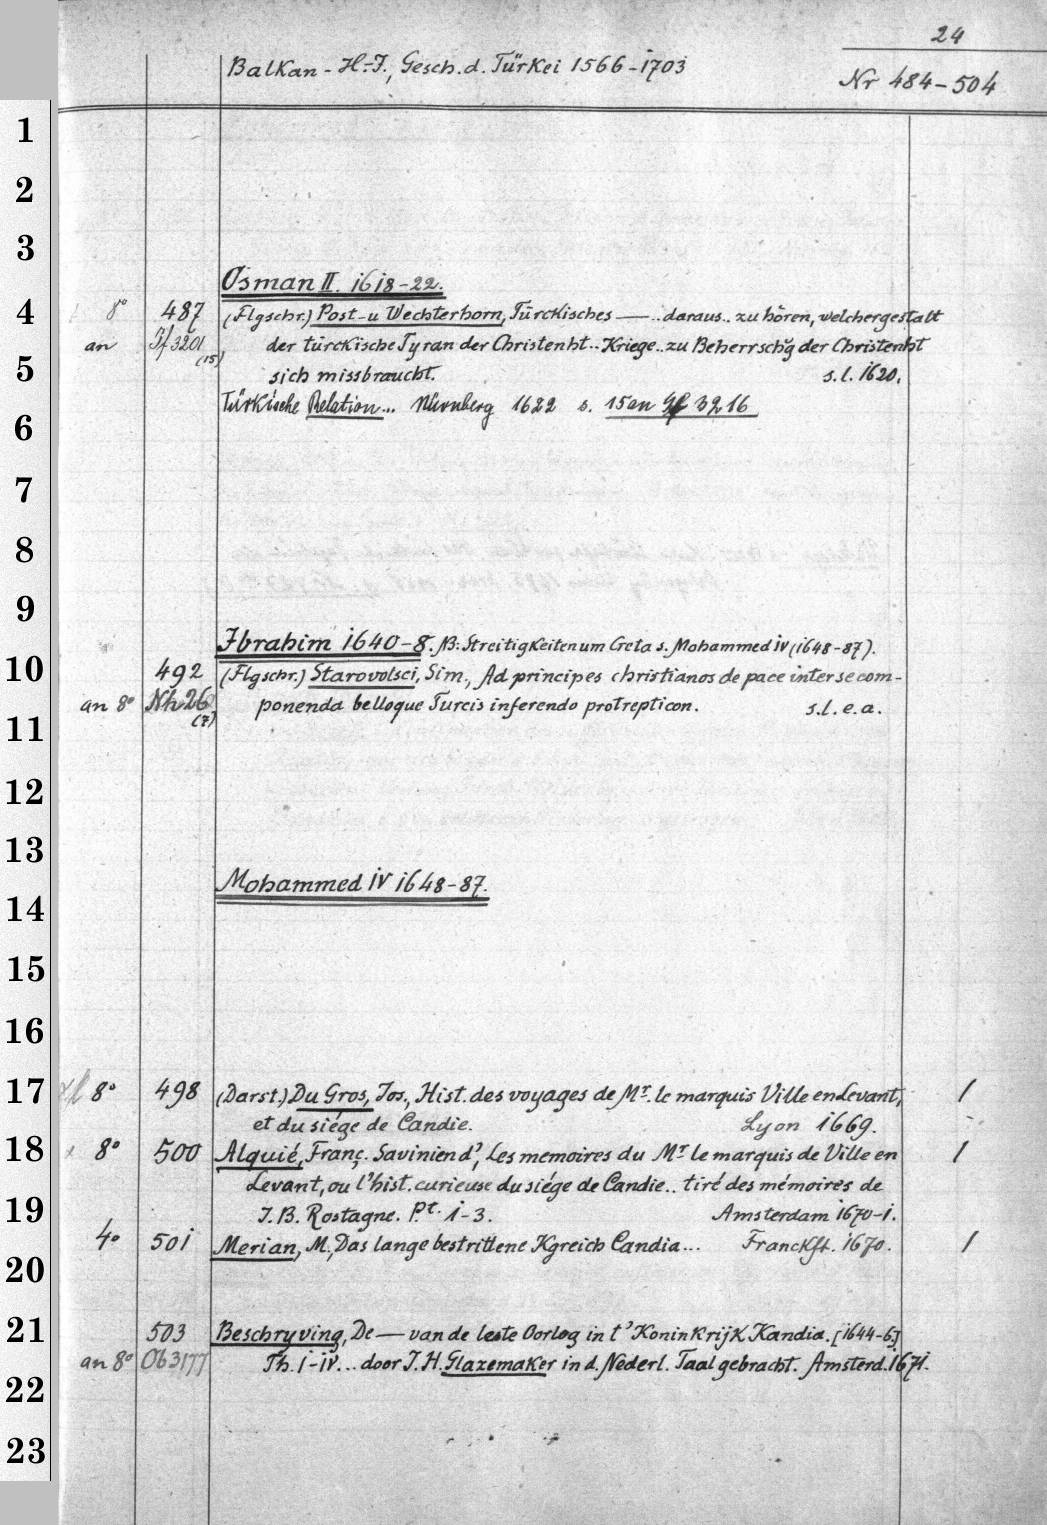 24
Balkan - H.-I., Gesch. d. Türkei 1566-1703
Nr 484-504
1
2
3
Osman II. 1618-22.
4 8° 487 (Flgschr.) Post- u Wechterhorn, Türckisches — .. daraus .. zu hören, welchergestalt
an 3201 (15) der türckische Tyran der Christenht .. Kriege .. zu Beherrschg der Christenht
5 sich missbraucht. s.l. 1620.
Türkische Relation... Nürnberg 1622 s. 15 an Gf 3216
6
7
8
9
Ibrahim 1640-8. NB: Streitigkeiten um Creta s. Mohammed IV (1648-87).
10 492 (Flgschr.) Starovolsci, Sim., Ad principes christianos de pace inter se com-
an 8° Nh 26 (7) ponenda belloque Turcis inferendo protrepticon. s.l.e.a.
11
12
13
Mohammed IV 1648-87.
14
15
16
17 8° 498 (Darst.) Du Gros, Jos., Hist. des voyages de Mr. le marquis Ville en Levant, 1
et du siége de Candie. Lyon 1669.
18 8° 500 Alquié, Franç. Savinien d', Les memoires du Mr le marquis de Ville en 1
Levant, ou l'hist. curieuse du siége de Candie .. tiré des mémoires de
19 J. B. Rostagne. Pt. 1-3. Amsterdam 1670-1.
4° 501 Merian, M., Das lange bestrittene Kgreich Candia ... Franckft. 1670. 1
20
21 503 Beschryving, De — van de leste Oorlog in t' Koninkrijk Kandia. [1644-6]
an 8° Ob 3177 Th. I-IV. .. door J. H. Glazemaker in d. Nederl. Taal gebracht. Amsterd. 1671.
22
23